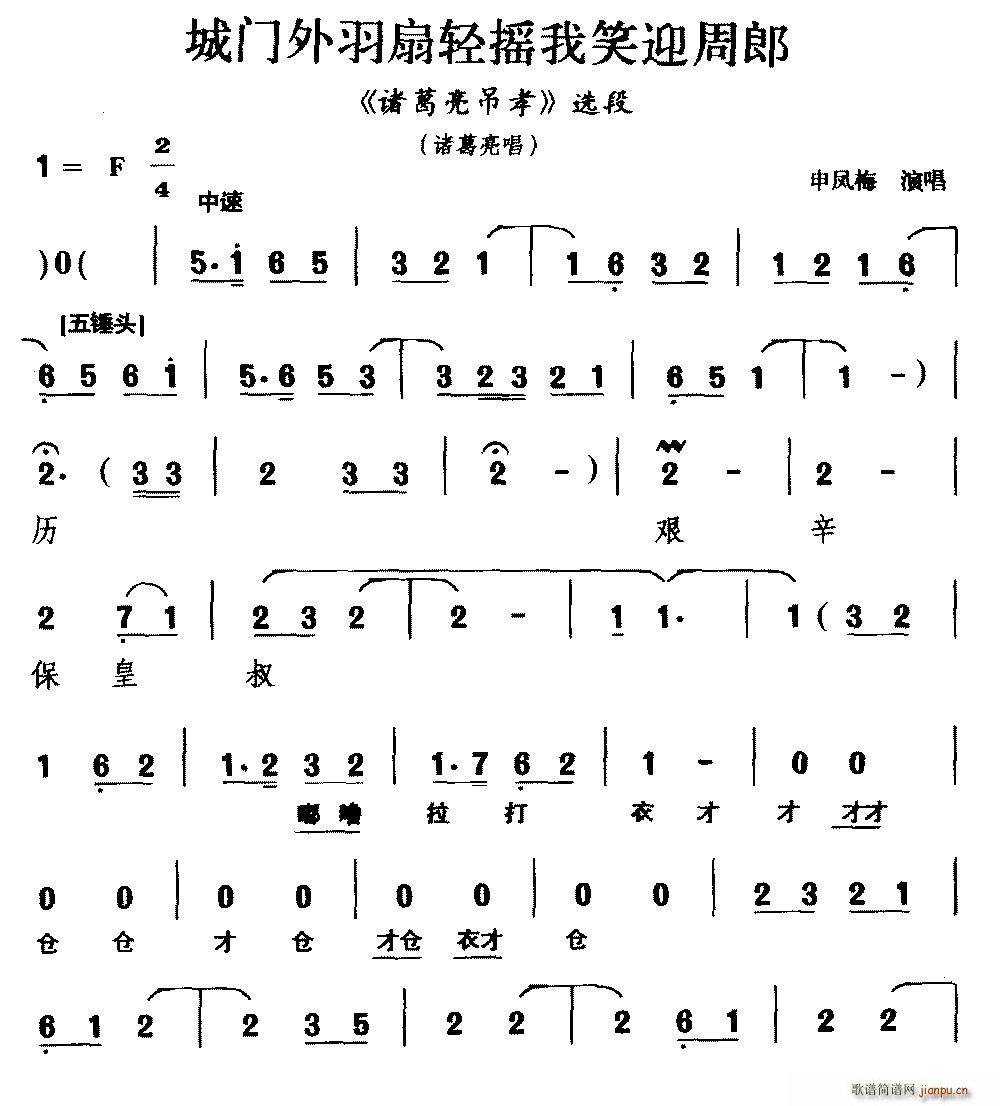 城门外羽扇轻摇我笑迎周郎
《诸葛亮吊孝》选段
（诸葛亮唱）
1 = F 2/4
中速
申凤梅 演唱
)0( | 5·i 6 5 | 3 2 1 | 1 6 3 2 | 1 2 1 6 |
[五锤头]
6 5 6 i | 5·6 5 3 | 3 2 3 2 1 | 6 5 1 | 1 - ) |
2· ( 3 3 | 2 3 3 | 2 - ) | 2 - | 2 - |
历 艰 辛
2 7 1 | 2 3 2 | 2 - | 1 1· | 1 ( 3 2 |
保 皇 叔
1 6 2 | 1·2 3 2 | 1·7 6 2 | 1 - | 0 0 |
拉 打 衣 才 才 才才
0 0 | 0 0 | 0 0 | 0 0 | 2 3 2 1 |
仓 仓 才 仓 才仓 衣才 仓
6 1 2 | 2 3 5 | 2 2 | 2 6 1 | 2 2 |
歌谱简谱网 jianpu.cn